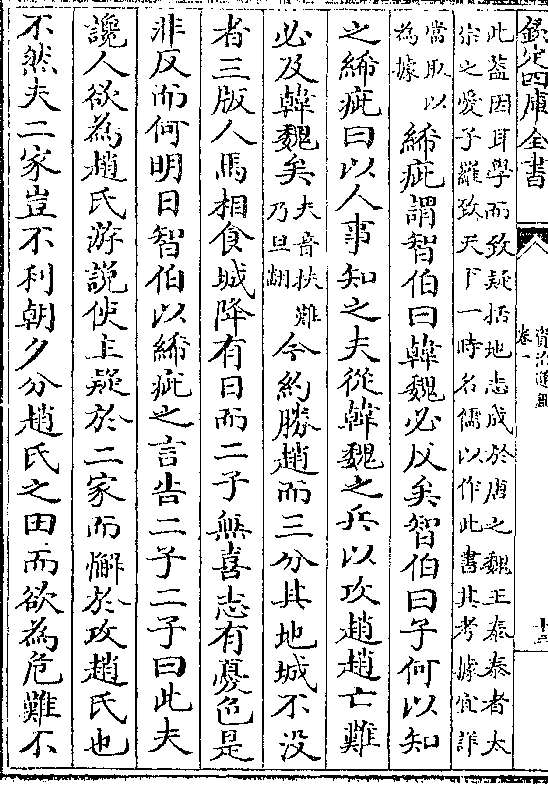 欽定四庫全書
資治通鑑
卷一
十三
此蓋因耳學而致疑括地志成於唐之魏王泰泰者太
宗之愛子羅致天下一時名儒以作此書其考據宜詳
當取以
為據
絺疵謂智伯曰韓魏必反矣智伯曰子何以知
之絺疵曰以人事知之夫從韓魏之兵以攻趙趙亡難
必及韓魏矣
夫音扶難
乃旦翻
今約勝趙而三分其地城不沒
者三版人馬相食城降有日而二子無喜志有憂色是
非反而何明日智伯以絺疵之言告二子二子曰此夫
讒人欲為趙氏游說使主疑於二家而懈於攻趙氏也
不然夫二家豈不利朝夕分趙氏之田而欲為危難不